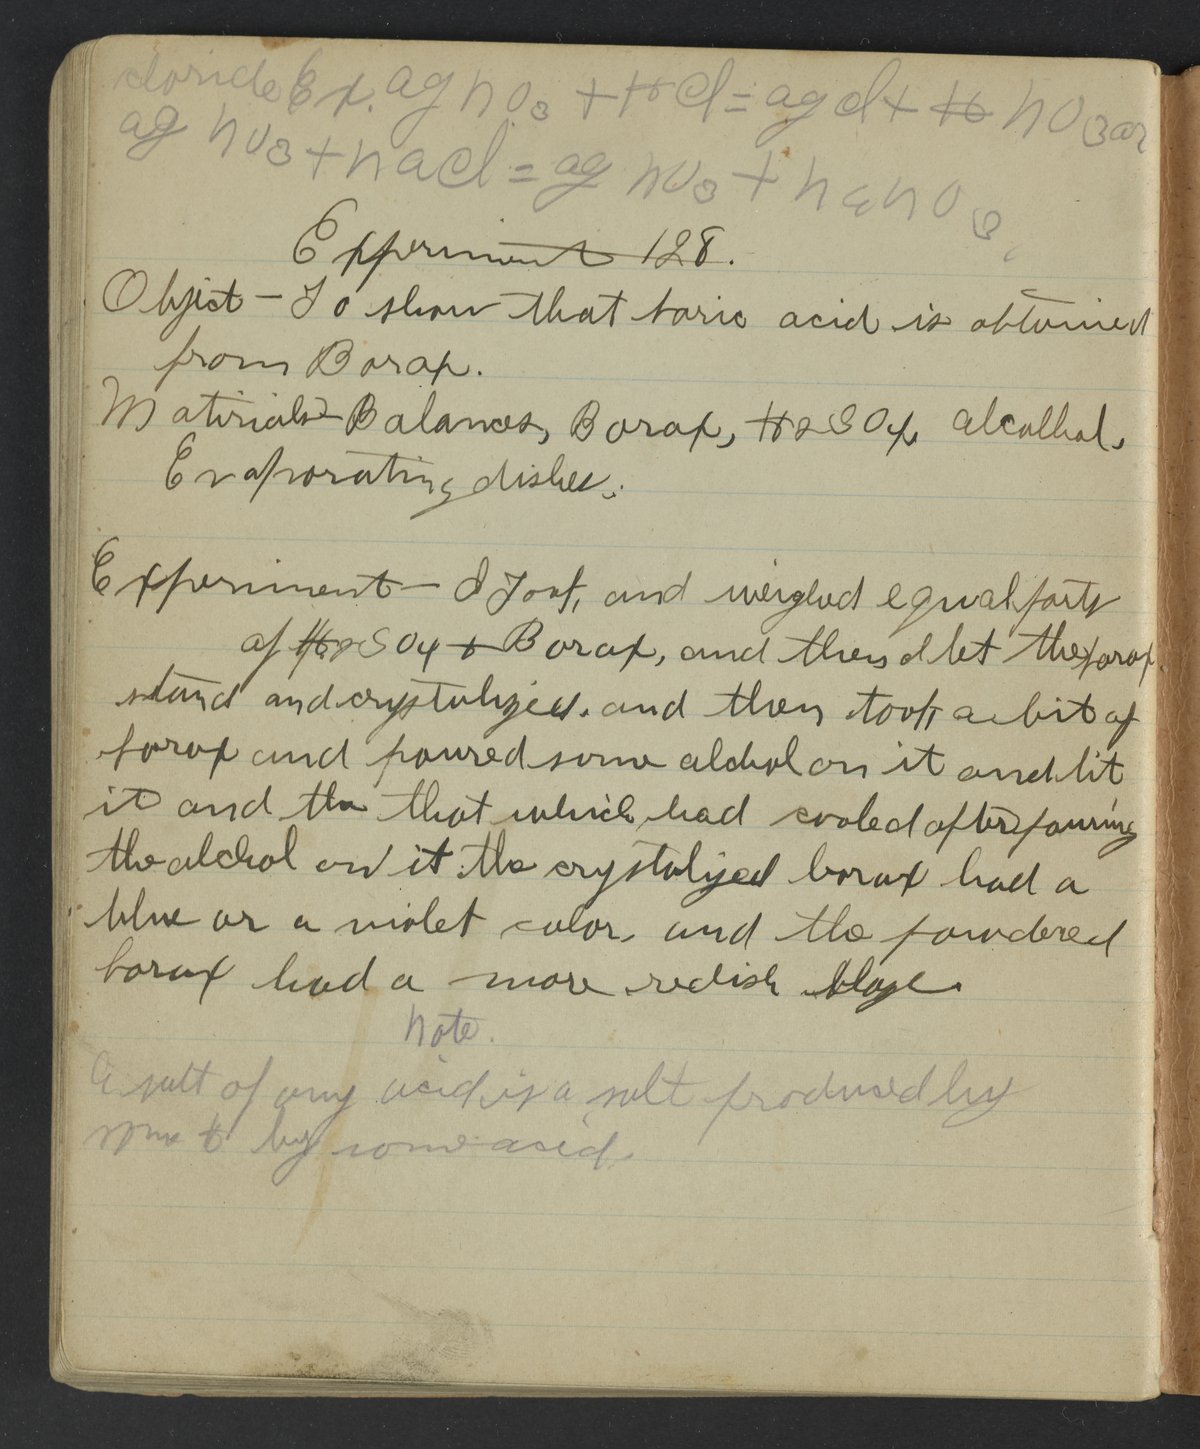 cloride Ex. Ag NO3 + HCl = AgCl + H NO3 or
Ag NO3 + NaCl = Ag NO3 + NaNO3.
Experiment 128.
Object - To show that boric acid is obtained
from Borax.
Materials - Balances, Borax, H2SO4, alcolhol,
Evaporating dishes.
Experiment - I Took, and weighed equal parts
of H2SO4 + Borax, and then I let the borax
stand and crystalized. and then took a bit of
borax and poured some alchol on it and lit
it and the that which had cooled after pouring
the alchol on it the crystalized borax had a
blue or a violet color, and the powdered
borax had a more redish blaze.
Note.
A salt of any acid is a salt produced by
by some acid.